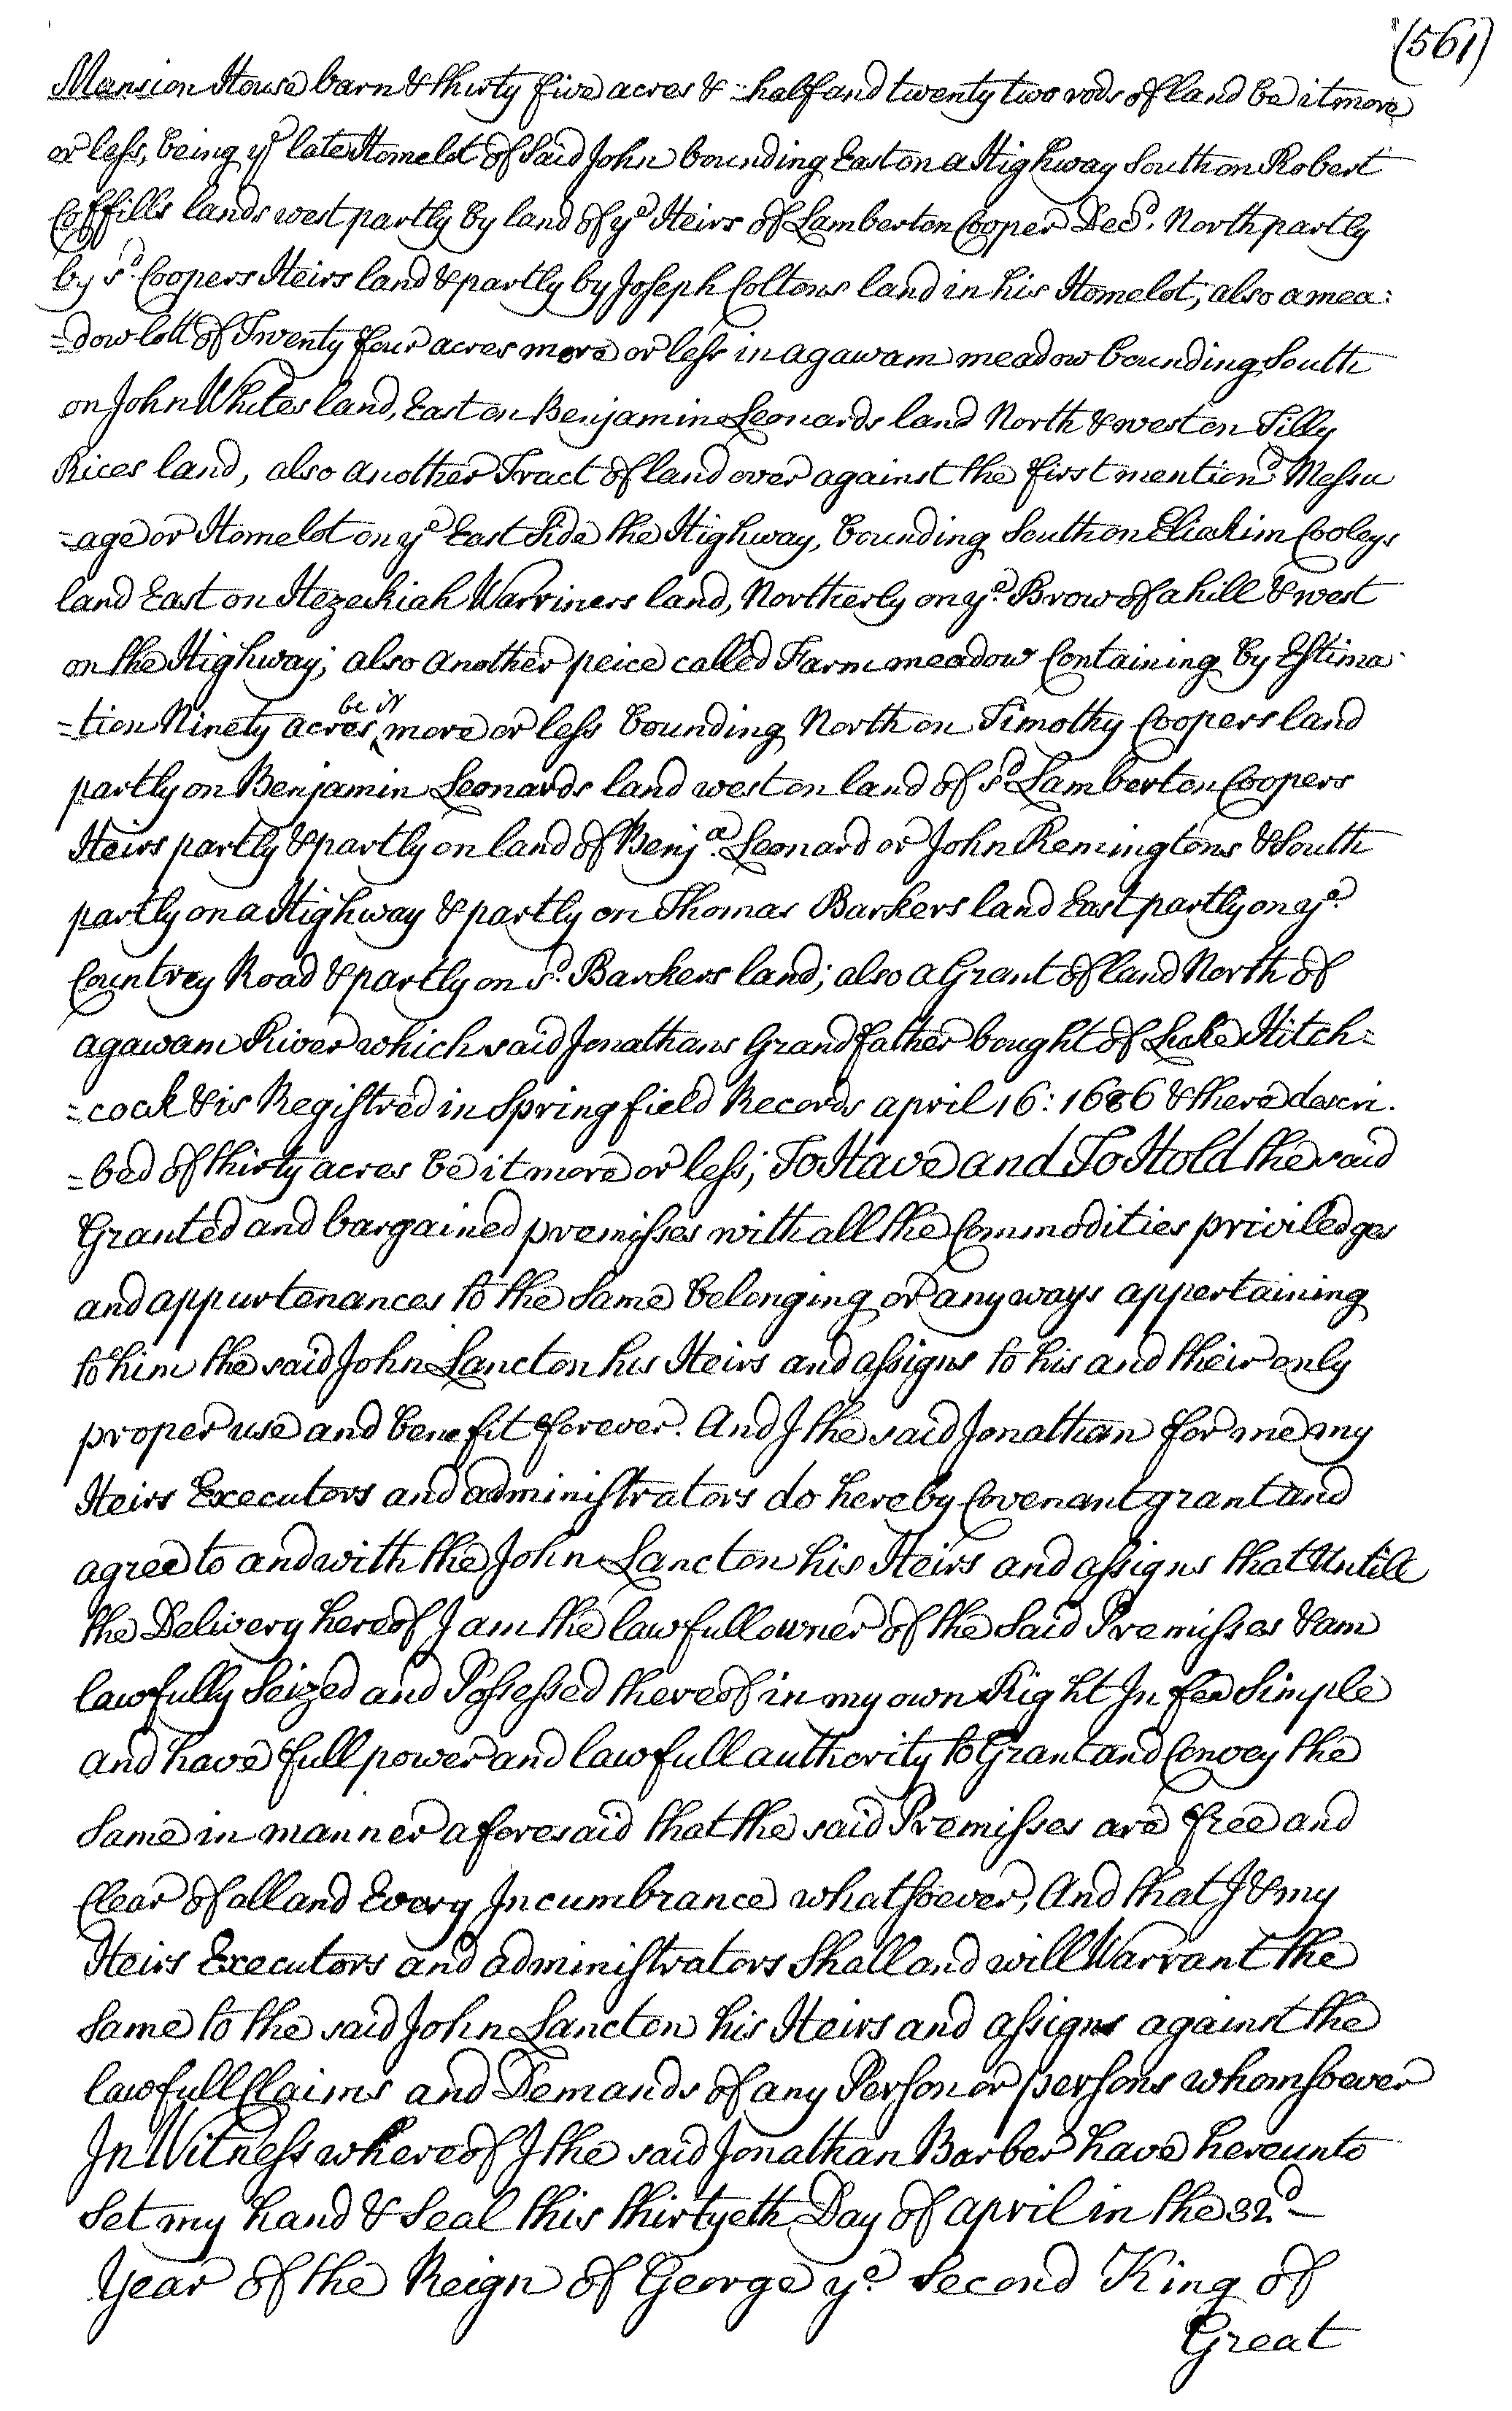 (561)
Mansion House barn & thirty five acres & half and twenty two rods of land be it more
or less, being ye late Homelot of Said John bounding East on a Highway South on Robert
Coffills lands west partly by land of ye Heirs of Lamberton Cooper Decd. North partly
by sd. Coopers Heirs land & partly by Joseph Coltons land in his Homelot; also a mea:
=dow lott of Twenty four acres more or less in agawam meadow bounding South
on John Whites land, East on Benjamin Leonards land North & west on Tilly
Rices land, also another Tract of land over against the first mentiond Messu
=age or Homelot on ye East Side the Highway, bounding South on Eliakim Cooleys
land East on Hezeckiah Warriners land, Northerly on ye. Brow of a hill & west
on the Highway; also another peice called Farm meadow Containing by Estima
=tion Ninety acres be it more or less bounding North on Timothy Coopers land
partly on Benjamin Leonards land west on land of sd Lamberton Coopers
Heirs partly & partly on land of Benja. Leonard or John Remingtons & South
partly on a Highway & partly on Thomas Barkers land East partly on ye.
Countrey Road & partly on sd. Barkers land; also a Grant of land North of
agawam River which said Jonathans Grandfather bought of Luke Hitch=
=cock & is Registred in Springfield Records april 16: 1686 & there descri.
=bed of thirty acres be it more or less; To Have and To Hold the said
Granted and bargained premisses with all the Commodities priviledges
and appurtenances to the Same belonging or any ways appertaining
to him the said John Lancton his Heirs and assigns to his and their only
proper use and benefit forever. And I the said Jonathan for me my
Heirs Executors and administrators do hereby Covenant grant and
agree to and with the John Lancton his Heirs and assigns that Untill
the Delivery hereof I am the lawfull owner of the Said Premisses & am
lawfully Seized and Possessed thereof in my own Right In fee Simple
and have full power and lawfull authority to Grant and Convey the
Same in manner aforesaid that the said Premisses are free and
Clear of all and Every Incumbrance whatsoever, And that I & my
Heirs Executors and administrators Shall and will Warrant the
Same to the said John Lancton his Heirs and assigns against the
lawfull Claims and Demands of any Person or persons whomsoever
In Witness whereof I the said Jonathan Barber have hereunto
Set my hand & Seal this thirtyeth Day of april in the 32d
Year of the Reign of George ye. Second King of
Great